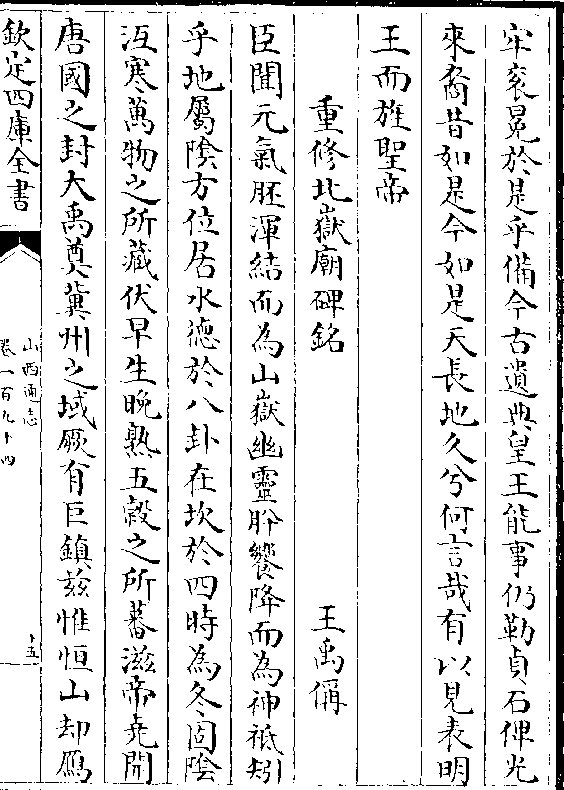 牢衮冕於是乎備今古遺典皇王能事仍勒貞石俾光
來裔昔如是今如是天長地久兮何言哉有以見表明
王而旌聖帝
重修北嶽廟碑銘 王禹偁
臣聞元氣胚渾結而為山嶽幽靈肸蠁降而為神祗矧
乎地屬陰方位居水德於八卦在坎於四時為冬固陰
沍寒萬物之所藏伏早生晚熟五穀之所蕃滋帝堯開
唐國之封大禹奠冀州之域厥有巨鎮兹惟恒山却鴈
欽定四庫全書
山西通志
卷一百九十四
十五